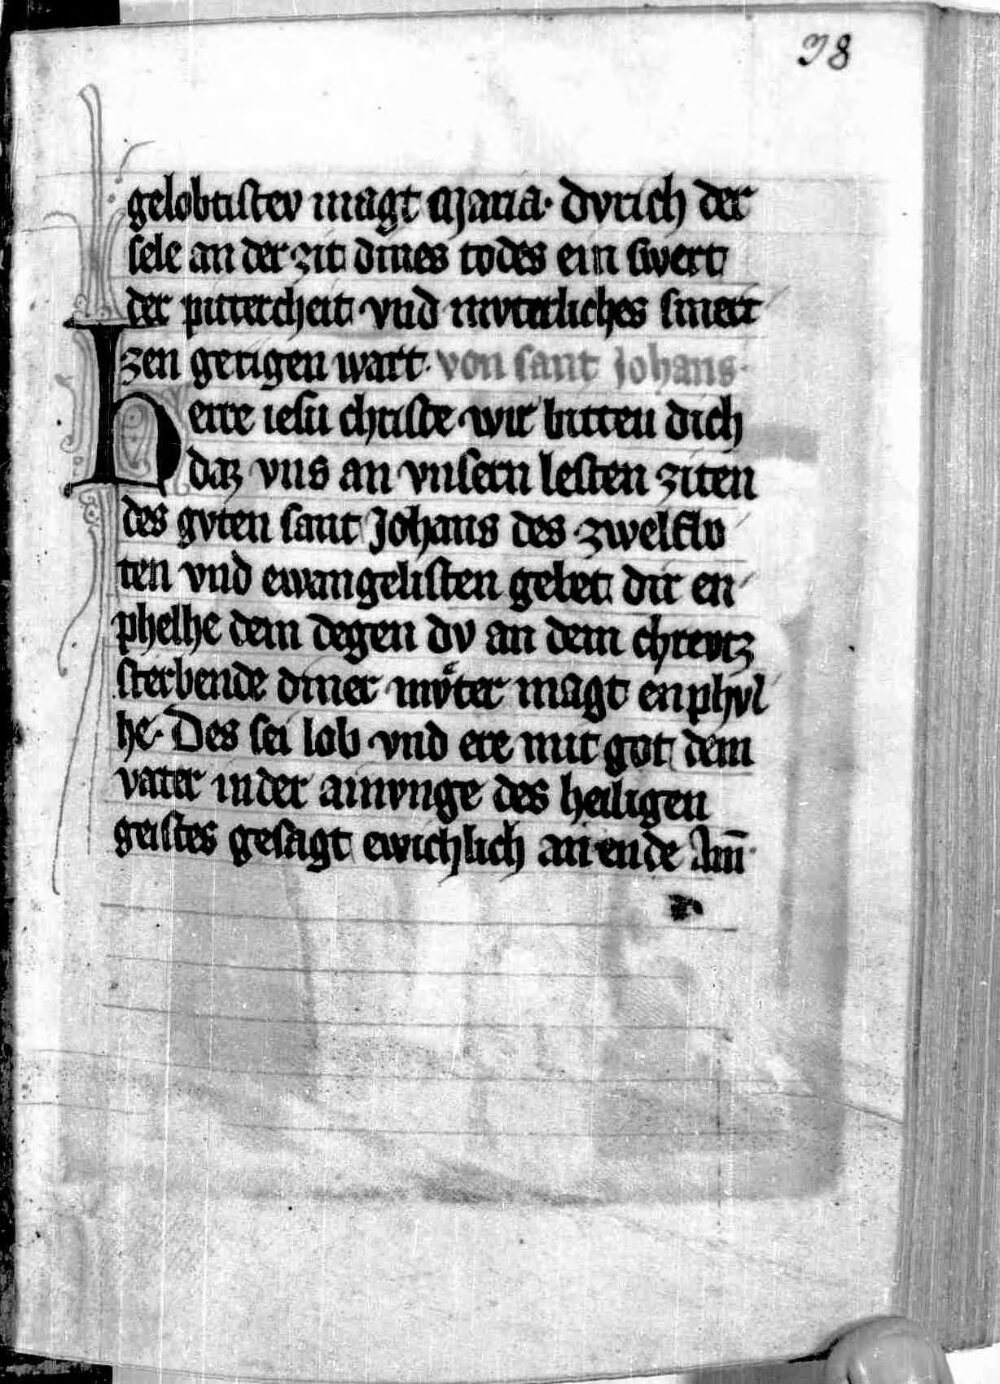 38
gelobtistev magt Maria. dvrich der
sele an der zit dines todes ein swert
der pittercheit vnd mvterliches smert
zen gerigen wart. von sant Johans.
herre iesu christe wir bitten dich
daz vns an vnsern lesten ziten
des gvten sant Johans des zwelfbo
ten vnd ewangelisten gebet dir en
phelhe dem degen dv an dem chrevtz
sterbende diner mvͦter magt enphvl
he. Des sei lob vnd ere mit got dem
vater in der ainvnge des heiligen
geistes gesagt ewichlich an ende Am̄